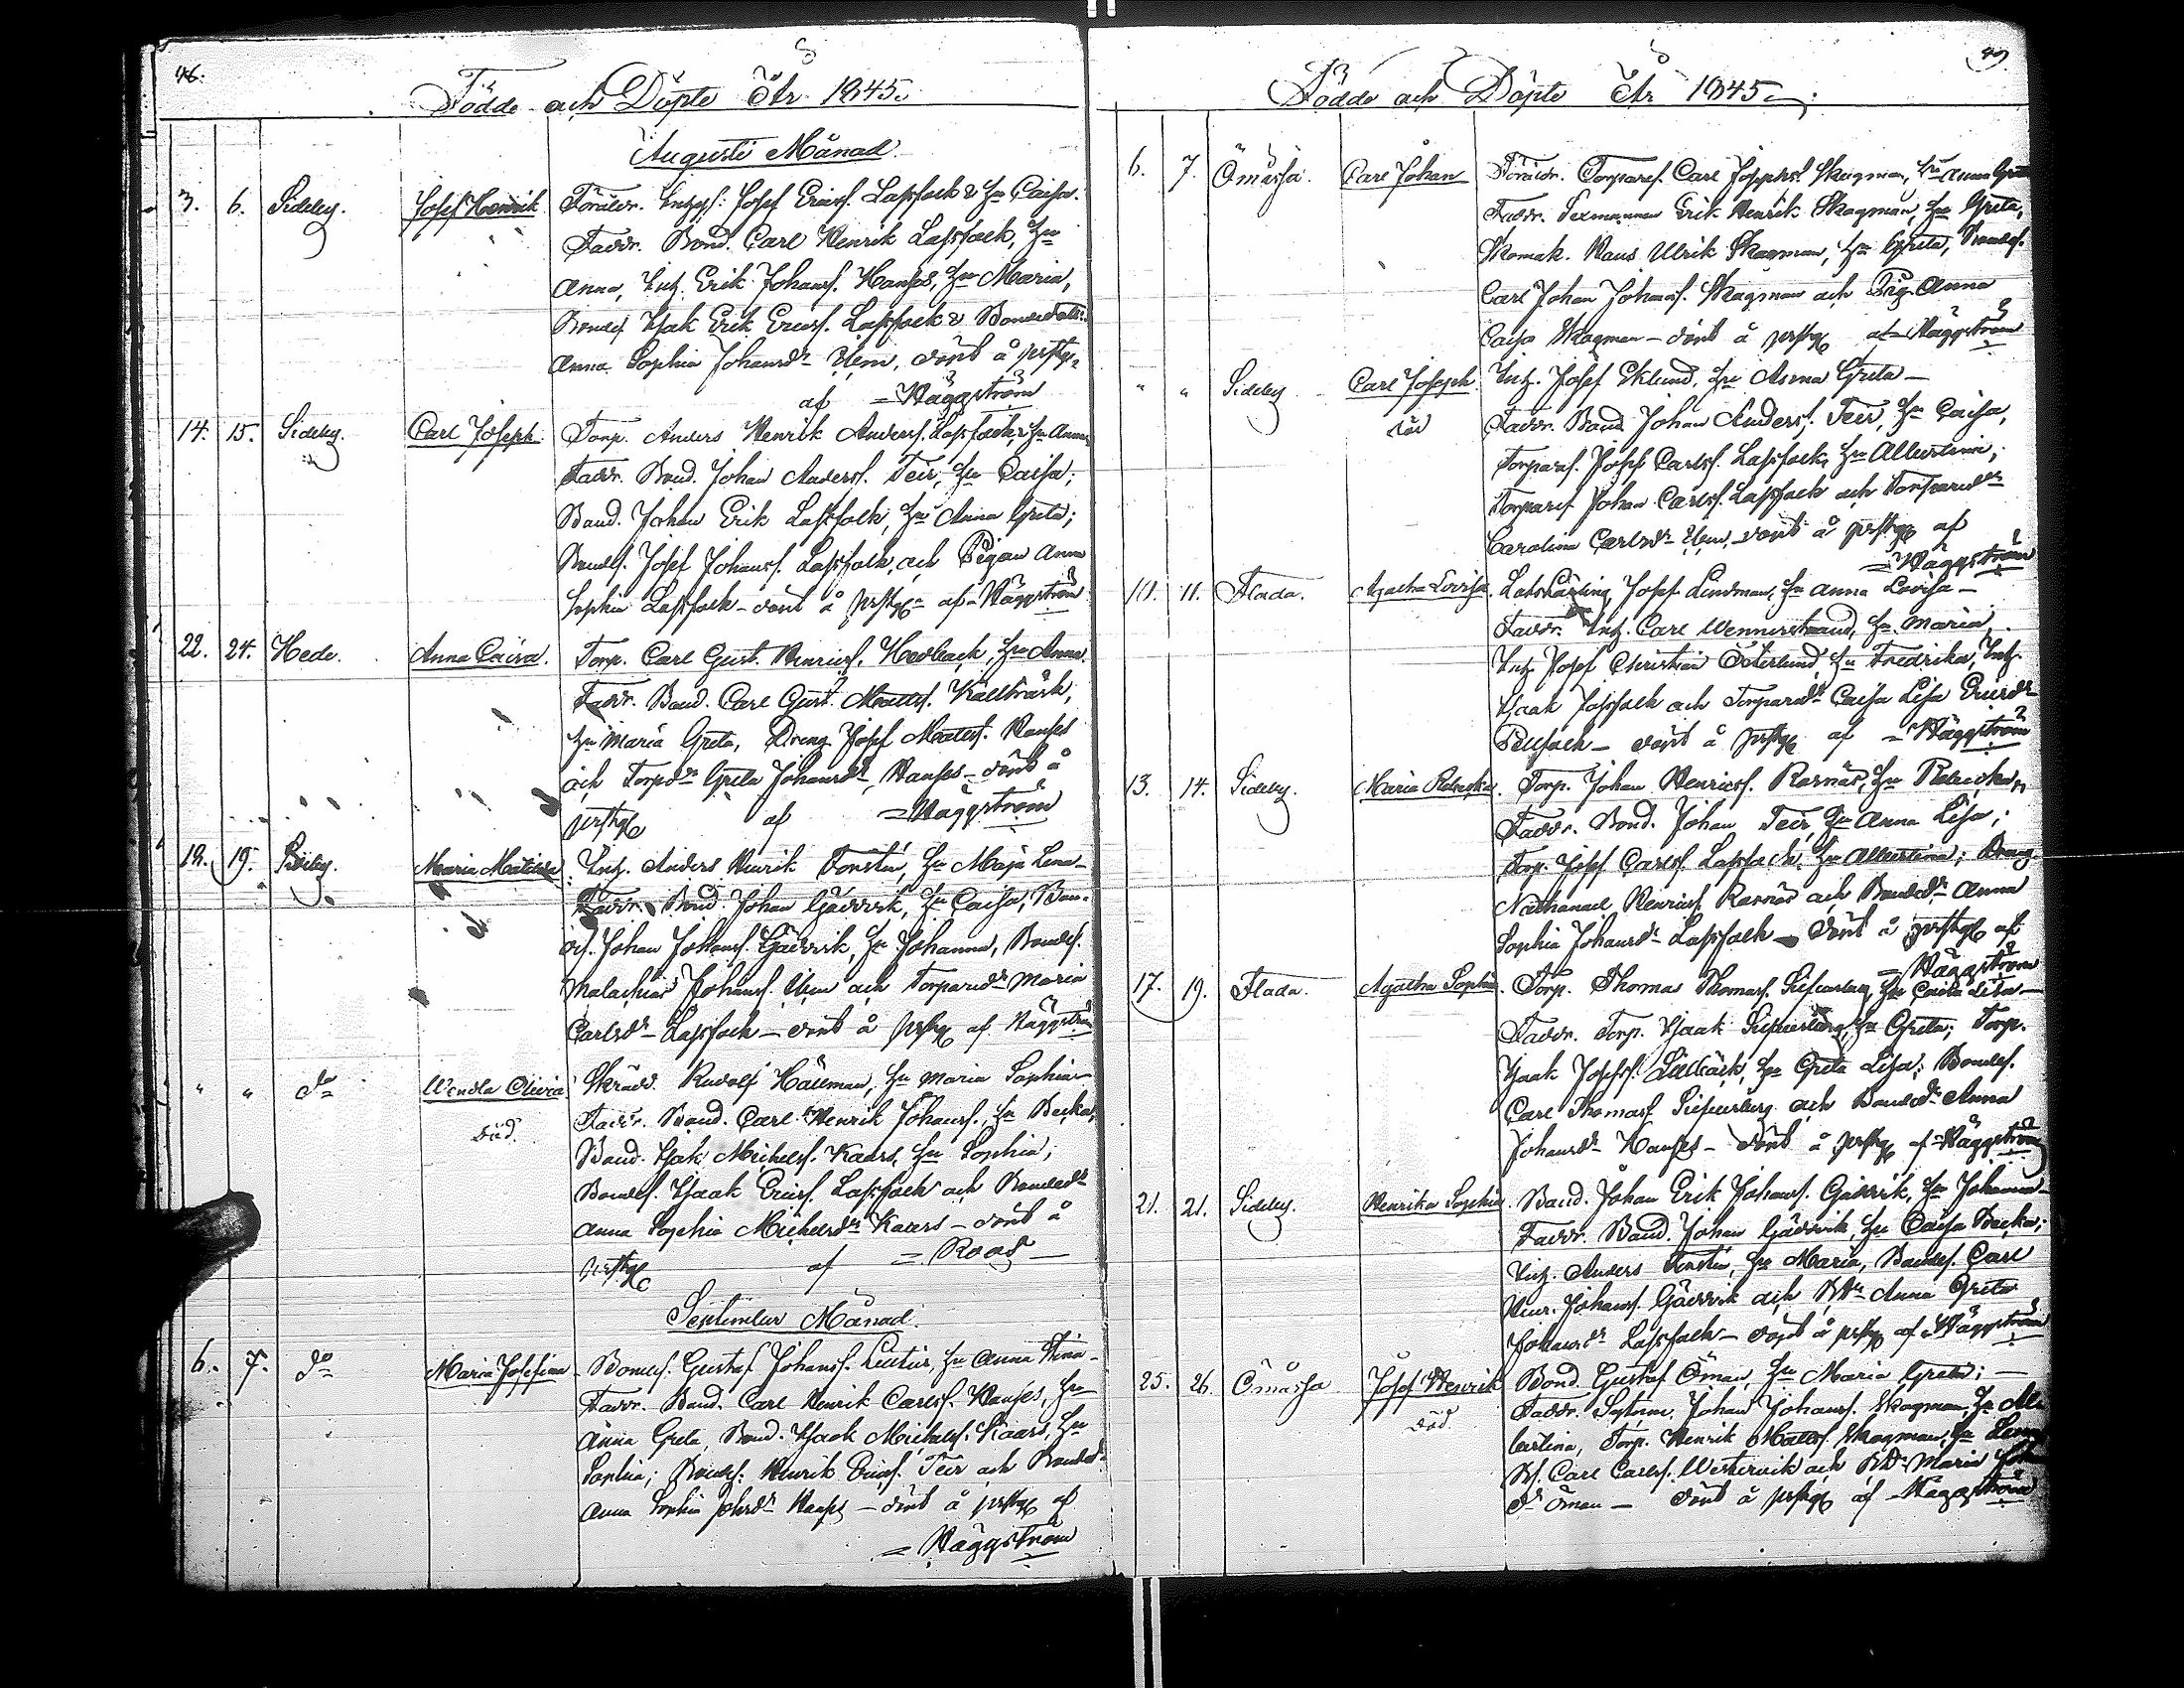 46.
Födde och Döpte År 1845.
Augusti Månad
3. 6. Sideby. Josef Henrik Föräldr. Inhys: Josef Ericss. Lassfolk & Hu Caisa.
Faddr. Bond. Carl Henrik Lassfolk, Hu
Anna, Inh. Erik Johanss. Hanses, Hu Maria,
Bondes. Isak Erik Ericss. Lassfolk & Bondedottr.
Anna Sophia Johansdr Ibm, döpt å prstg.
af = Häggström
14. 15. Sideby. Carl Joseph Torp. Anders Henrik Anderss. Lassfolk, & Hu Anna
Faddr. Bond. Johan Anderss. Teir, Hu Caisa;
Bond. Johan Erik Lassfolk, Hu Anna Greta;
Bondes. Josef Johanss. Lassfolk, och Pigan Anna
Sophia Lassfolk - döpt å prstg. af = Häggström
22. 24. Hede. Anna Caisa. Torp. Carl Gust. Henricss. Hedback, Hu Anna.
Faddr. Bond. Carl Gust. Mattss. Källträsk,
Hu Maria Greta, Dreng Josef Mattss. Hanses
och Torpdr Greta Johansdr Hanses - döpt å
prstg. af = Häggström
18. 19. Sideby. Maria Matilda Inh. Anders Henrik Forstén, Hu Maja Lena -
Faddr. Bond. Johan Gäddvik, Hu Caisa, Bon-
des. Johan Johanss. Gäddvik, Hu Johanna, Bondes.
Malachias Johanss. Ibm och Torparedr Maria
Carlsdr Lassfolk - döpt å prstg. af Häggström
" " do Wendla Olivia Skrädd. Rudolf Hällman, Hu Maria Sophia -
död. Faddr. Bond. Carl Henrik Johanss., Hu Becka,
Bond. Isak Michelss. Kaars, Hu Sophia;
Bondes. Isaak Ericss. Lassfolk och Bondedr
Anna Sophia Michelsdr Kaars - döpt å
prstg. af = Roos
September Månad.
6. 7. do Maria Josefina Bondes. Gustaf Johanss. Hu Anna Stina -
Faddr. Bond. Carl Henrik Carlss. Hanses, Hu
Anna Greta, Bond. Isack Michelss. Kaars, Hu
Sophia; Bondes. Henrik Ericss. Teir och Bondedr
Anna Sophia Johsdr Hanses - döpt å prstg. af
= Häggström
Födde och Döpte År 1845.
6. 7. Ömossa. Carl Johan Föräldr. Torpares. Carl Josephss. Skogman, Hu Anna Greta
Faddr. Seemannen Erik Henrik Skogman, Hu Greta,
Skomak. Hans Ulrik Skogman, Hu Greta, Bondes.
Carl Johan Johanss. Skogman och Pig. Anna
Caisa Skogman - döpt å prstg. af = Häggström
" " Sideby Carl Joseph Inh. Josef Eklund, Hu Anna Greta -
död Faddr. Bond. Johan Anderss. Teir, Hu Caisa,
Torpares. Josef Carlss. Lassfolk, Hu Albertina;
Torpares. Johan Carlss. Lassfolk och Torparedr
Carolina Carlsdr Ibm, döpt å prstg. af
= Häggström
10. 11. Flada. Agatha Lovisa. Josef Lindman, Hu Anna Lovisa -
Faddr. Inh. Carl Wennerstrand, Hu Maria,
Inh. Josef Christian Österlund, Hu Fredrika, Inh.
Isaak Jossfolk och Torparedr Caisa Lisa Ericsdr
Pellfolk - döpt å prstg. af = Häggström
13. 14. Sideby. Maria Rebecka. Torp. Johan Henricss. Rosnäs, Hu Rebecka,
Faddr. Bond. Johan Teir, Hu Anna Lisa;
Torp. Josef Carlss. Lassfolk, Hu Albertina; Dreng
Nathanael Henricss. Rosnäs och Bondedr Anna
Sophia Johansdr Lassfolk - döpt å prstg. af
= Häggström
17. 19. Flada. Agatha Sophia. Torp. Thomas Thomass. Hu Caisa Lisa -
Faddr. Torp. Isaak Hu Greta; Torp.
Isaak Josefss. Hu Greta Lisa; Bondes.
Carl Thomass. och Bondedr Anna
Johansdr Hanses - döpt å prstg. af = Häggström
21. 21. Sideby. Henrika Sophia. Bond. Johan Erik Johanss. Gäddvik, Hu Johanna -
Faddr. Bond. Johan Gäddvik, Hu Caisa Becka;
Inh. Anders Forstén, Hu Maria, Bondes. Carl
Henr. Johanss. Gäddvik och BDr Anna Greta
Johansdr Lassfolk - döpt å prstg. af = Häggström
25. 26. Ömossa Josef Henrik Bond. Gustaf Öman, Hu Maria Greta; -
död. Faddr. Johan Johanss. Skogman, Hu Al-
bertina, Torp. Henrik Mattss. Skogman, Hu Lena
Bs. Carl Carlss. Westervik och BDr Maria
dr Öman - döpt å prstg. af = Häggström